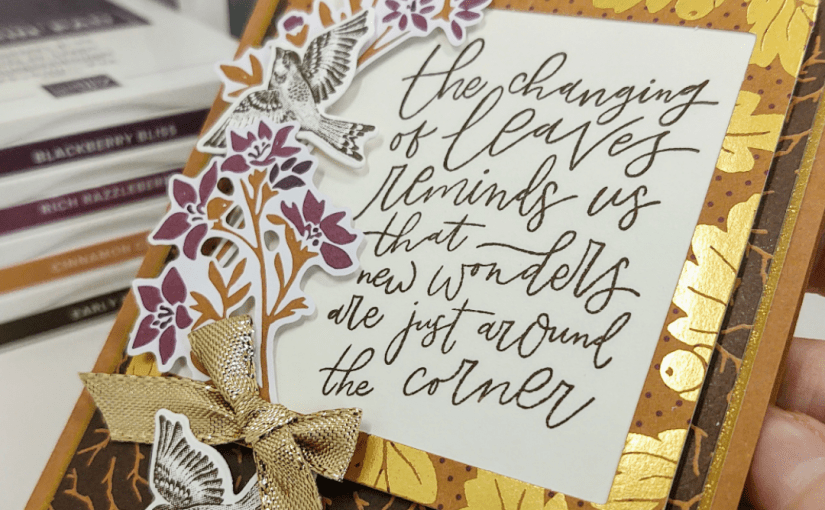 BLACKBERRY BLISS
RICH RAZZLEBER
CINNAMON C
EARLY
the changing
of leaves
reminds us
that
new wonders
are just around
the corner